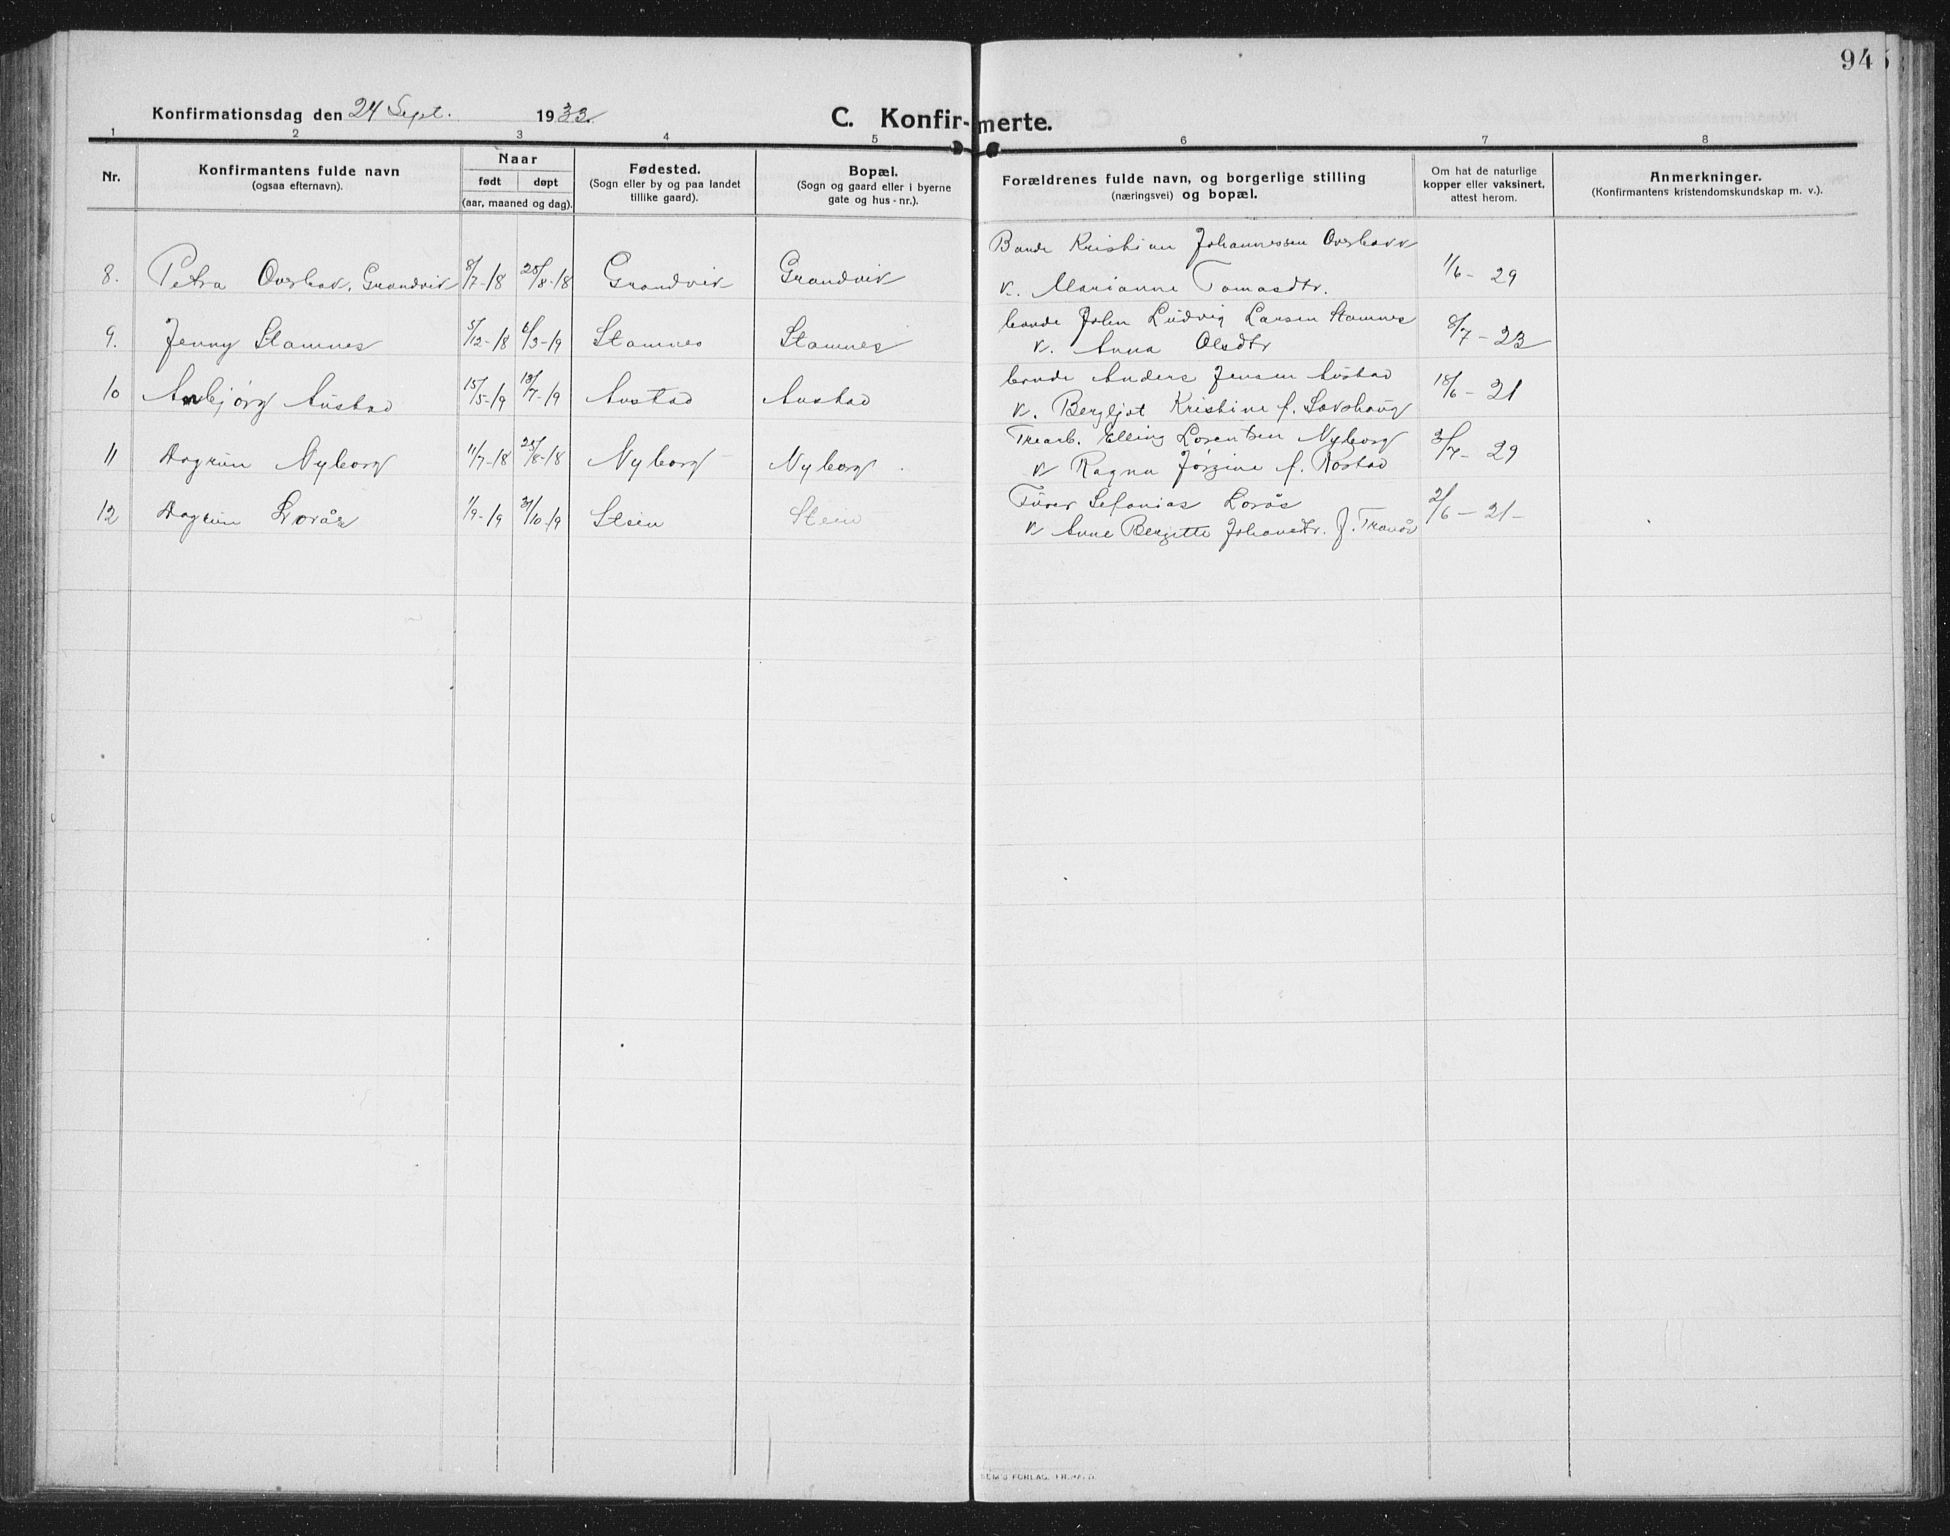 94
Konfirmationsdag den 24 Sept. 1933
C. Konfirmerte.
1 2 3 4 5 6 7 8
Nr.
Konfirmantens fulde navn
(ogsaa efternavn).
Naar
født døpt
(aar, maaned og dag).
Fødested.
(Sogn eller by og paa landet
tillike gaard).
Bopæl.
(Sogn og gaard eller i byerne
gate og hus-nr.).
Forældrenes fulde navn, og borgerlige stilling
(næringsvei) og bopæl.
Om hat de naturlige
kopper eller vaksinert,
attest herom.
Anmerkninger.
(Konfirmantens kristendomskundskap m. v.).
8. Petra Overhav, Grandvik 8/7-18 25/8-18 Grandvik Grandvik Bonde Kristian Johannessen Overhavv 1/6-29
v. Marianne Tomasdtr.
9. Jenny Stamnes 5/12-18 6/3-19 Stamnes Stamnes bonde John Ludvig Larsen Stamnes 8/7-23
v. Anna Olsdtr
10 Anbjørg Austad 15/5-19 13/7-19 Austad Austad bonde Anders Jensen Austad 18/6-21
v. Bergljot Kristine f.
11 Dagrun Nyborg 11/7-18 25/8-18 Nyborg Nyborg. Trearb. Elling Lorentsen Nyborg 3/7-29
v Ragna Jørgine f. Rostad
12 Dagrun Lorås 1/9-19 31/10-19 Stein Stein Furer Sefanias Lorås 2/6-21-
v Anne Bergitte Johansdtr. f. Tranås